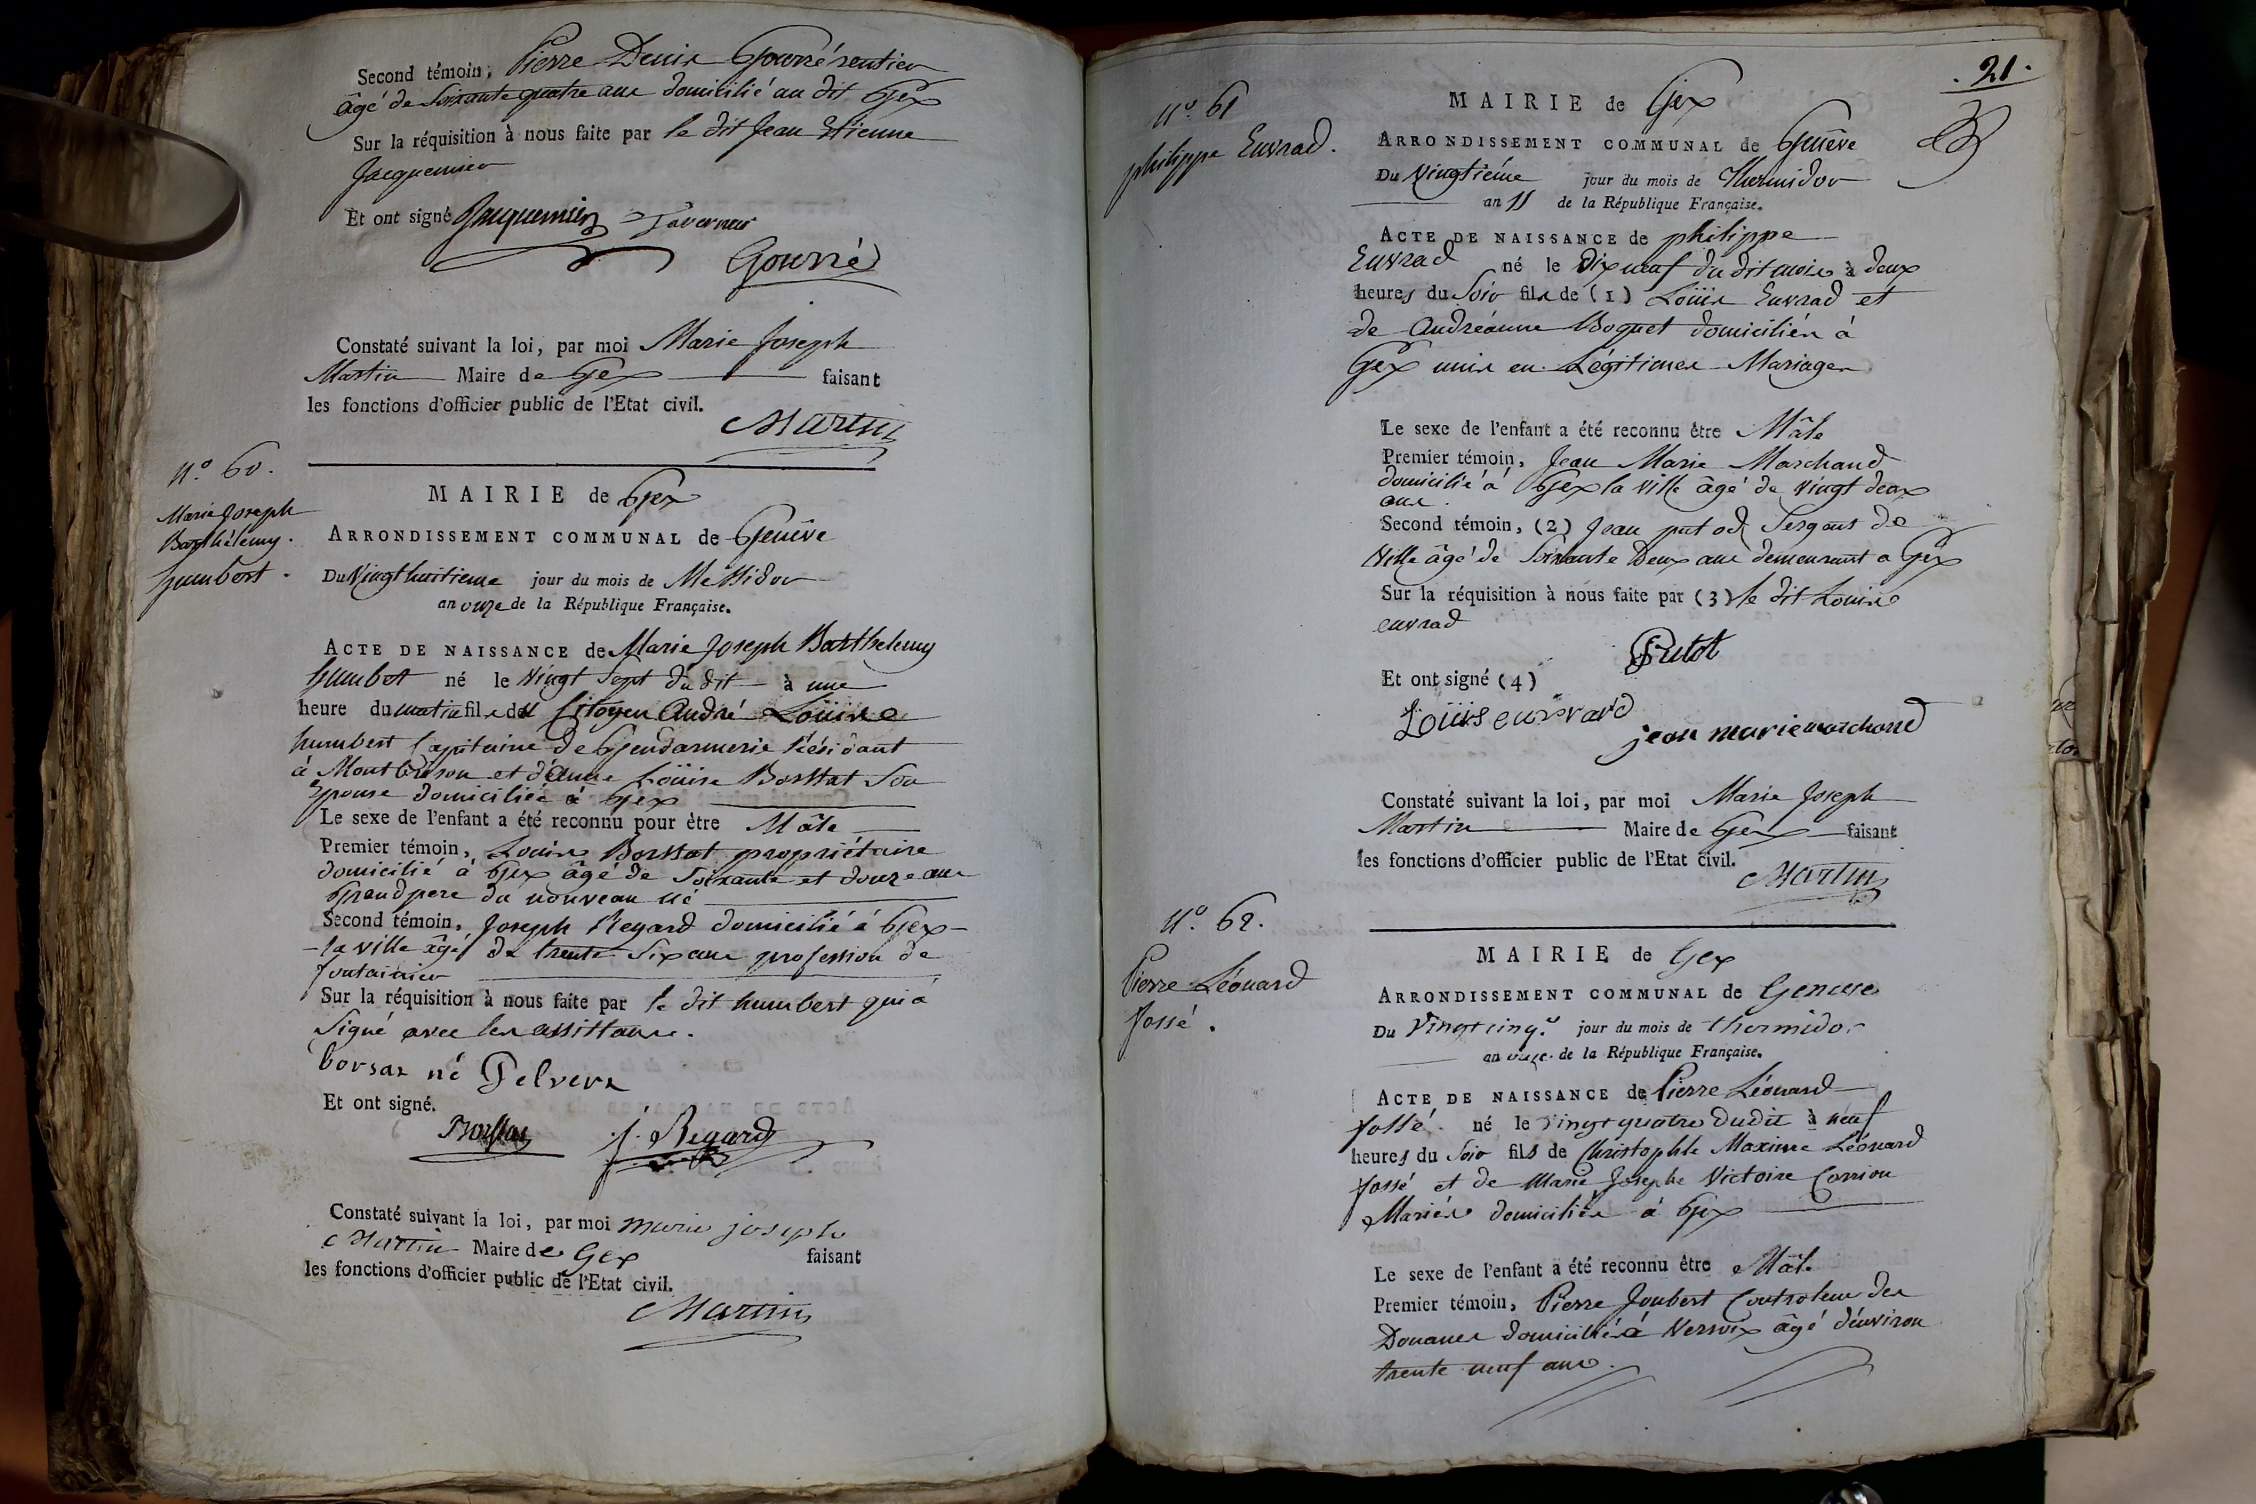 Second témoin, Pierre Denis Gouvré rentier
âgé de Soixante quatre ans domicilié au dit Gex
Sur la réquisition à nous faite par le dit Jean Etienne
Jacquemier
Et ont signé Jacquemier Taverneur
Gouvré
Constaté suivant la loi, par moi Marie Joseph
Martin Maire de Gex faisant
les fonctions d'officier public de l'Etat civil.
Martin
N.º 60.
Marie Joseph
Barthélemy.
humbert.
MAIRIE de Gex
ARRONDISSEMENT COMMUNAL de Genêve
Du Vingt huitieme jour du mois de Messidor
an onze de la République Française.
ACTE DE NAISSANCE de Marie Joseph Barthelemy
humbert né le Vingt Sept du dit à une
heure du matin fils de Citoyen André Loüis
humbert Capitaine de Gendarmerie Résidant
à Montbrison et d'anne Loüise Borssat Son
Epouse domiciliée à Gex
Le sexe de l'enfant a été reconnu pour être Mâle
Premier témoin, Louis Borssat propriétaire
domicilié à Gex âgé de Soixante et douze ans
Grand pere du nouveau né
Second témoin, Joseph Regard domicilié à Gex
la ville âgé de trente Six ans profession de
fontainier
Sur la réquisition à nous faite par le dit humbert qui à
Signé avec les assistans.
borsat né
Et ont signé.
Borssat J. Regard
Constaté suivant la loi, par moi marie joseph
Martin Maire de Gex faisant
les fonctions d'officier public de l'Etat civil.
Martin
. 21 .
N.º 61
philippe Euvrad.
MAIRIE de Gex
ARRONDISSEMENT COMMUNAL de Genêve
Du Vingtiéme jour du mois de Thermidor
an 11 de la République Française.
ACTE DE NAISSANCE de philippe
Euvrad né le Dix neuf du dit mois à deux
heures du Soir fils de (1) Loüis Euvrad et
de Andréanne Boquet domiciliés à
Gex unis en Légitimes Mariages
Le sexe de l'enfant a été reconnu être Mâle
Premier témoin, Jean Marie Marchand
domicilié à Gex la ville âgé de vingt deux
ans.
Second témoin, (2) Jean putod Sergant de
Ville âgé de Soixante Deux ans demeurant a Gex
Sur la réquisition à nous faite par (3) le dit Louis
euvrad
Putot
Et ont signé (4)
Loüis euvrard
jean marie marchand
Constaté suivant la loi, par moi Marie Joseph
Martin Maire de Gex faisant
les fonctions d'officier public de l'Etat civil.
Martin
N.º 62.
Pierre Léonard
fossé.
MAIRIE de Gex
ARRONDISSEMENT COMMUNAL de Geneve
Du Vingt cinq.e jour du mois de thermidor
an onze de la République Française.
ACTE DE NAISSANCE de Pierre Léonard
fossé. né le vingt quatre dudit à neuf
heures du Soir fils de Christophle Maxime Léonard
fossé et de Marie Josephe Victoire Carrion
Mariés domiciliés à Gex
Le sexe de l'enfant a été reconnu être Mâle
Premier témoin, Pierre Joubert Controleur des
Douanes domicilié à Versoix âgé d'environ
trente neuf ans.